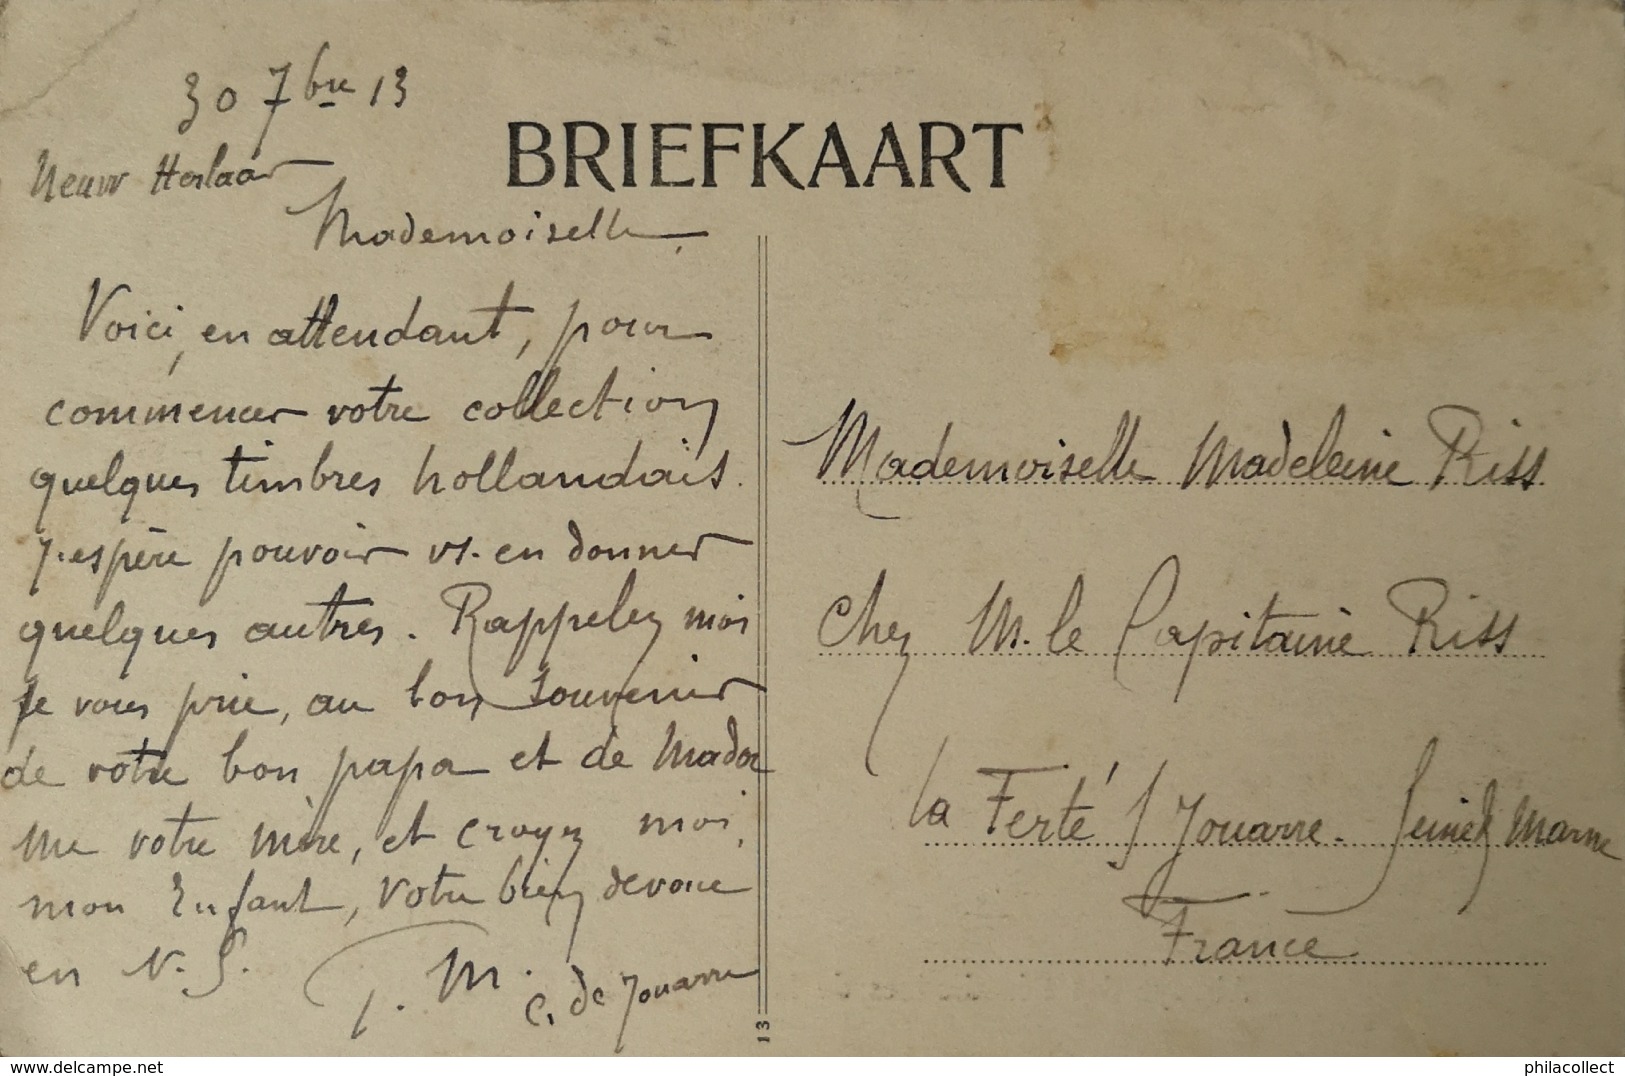 30 7bre 13
BRIEFKAART
Mademoiselle
Voici, en attendant, pour
commencer votre collection
quelques timbres hollandais.
J'espère pouvoir vs. en donner
quelques autres. Rappelez moi
je vous prie, au bon souvenir
de votre bon papa et de Mada
me votre mère, et croyez moi,
mon Enfant, Votre bien dévoué
en N. S.
M.
C. de Jouarre
13
Mademoiselle Madeleine Riss
Chez M. le Capitaine Riss
La Ferté s/ Jouarre. Seine & Marne
France
philacollect